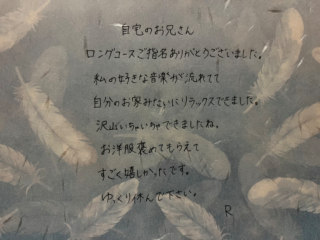 自宅のお兄さん
ロングコースご指名ありがとうございました。
私の好きな音楽が流れてて
自分のお家みたいにリラックスできました。
沢山いちゃいちゃできましたね。
お洋服褒めてもらえて
すごく嬉しかったです。
ゆっくり休んで下さい。
R